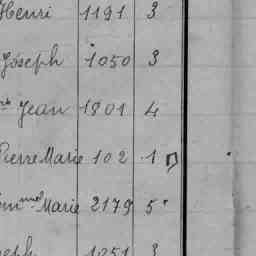 Henri 1191 3
Joseph 1050 3
Jean 1801 4
Pierre Marie 102 1
Marie 2179 5
1051 3